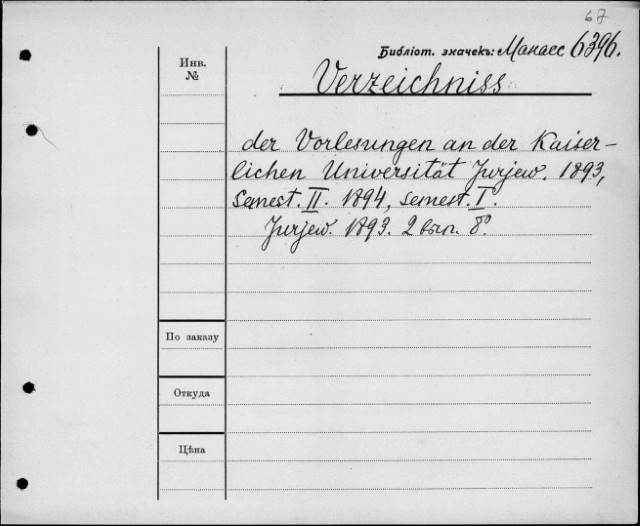 67
Библіот. значекъ: Манаес 6396.
Инв.
№
Verzeichniss
der Vorlesungen an der Kaiser-
lichen Universität Jurjew. 1893,
Semest. II. 1894, semest. I.
Jurjew. 1893. 2 вып. 8º.
По заказу
Откуда
Цѣна